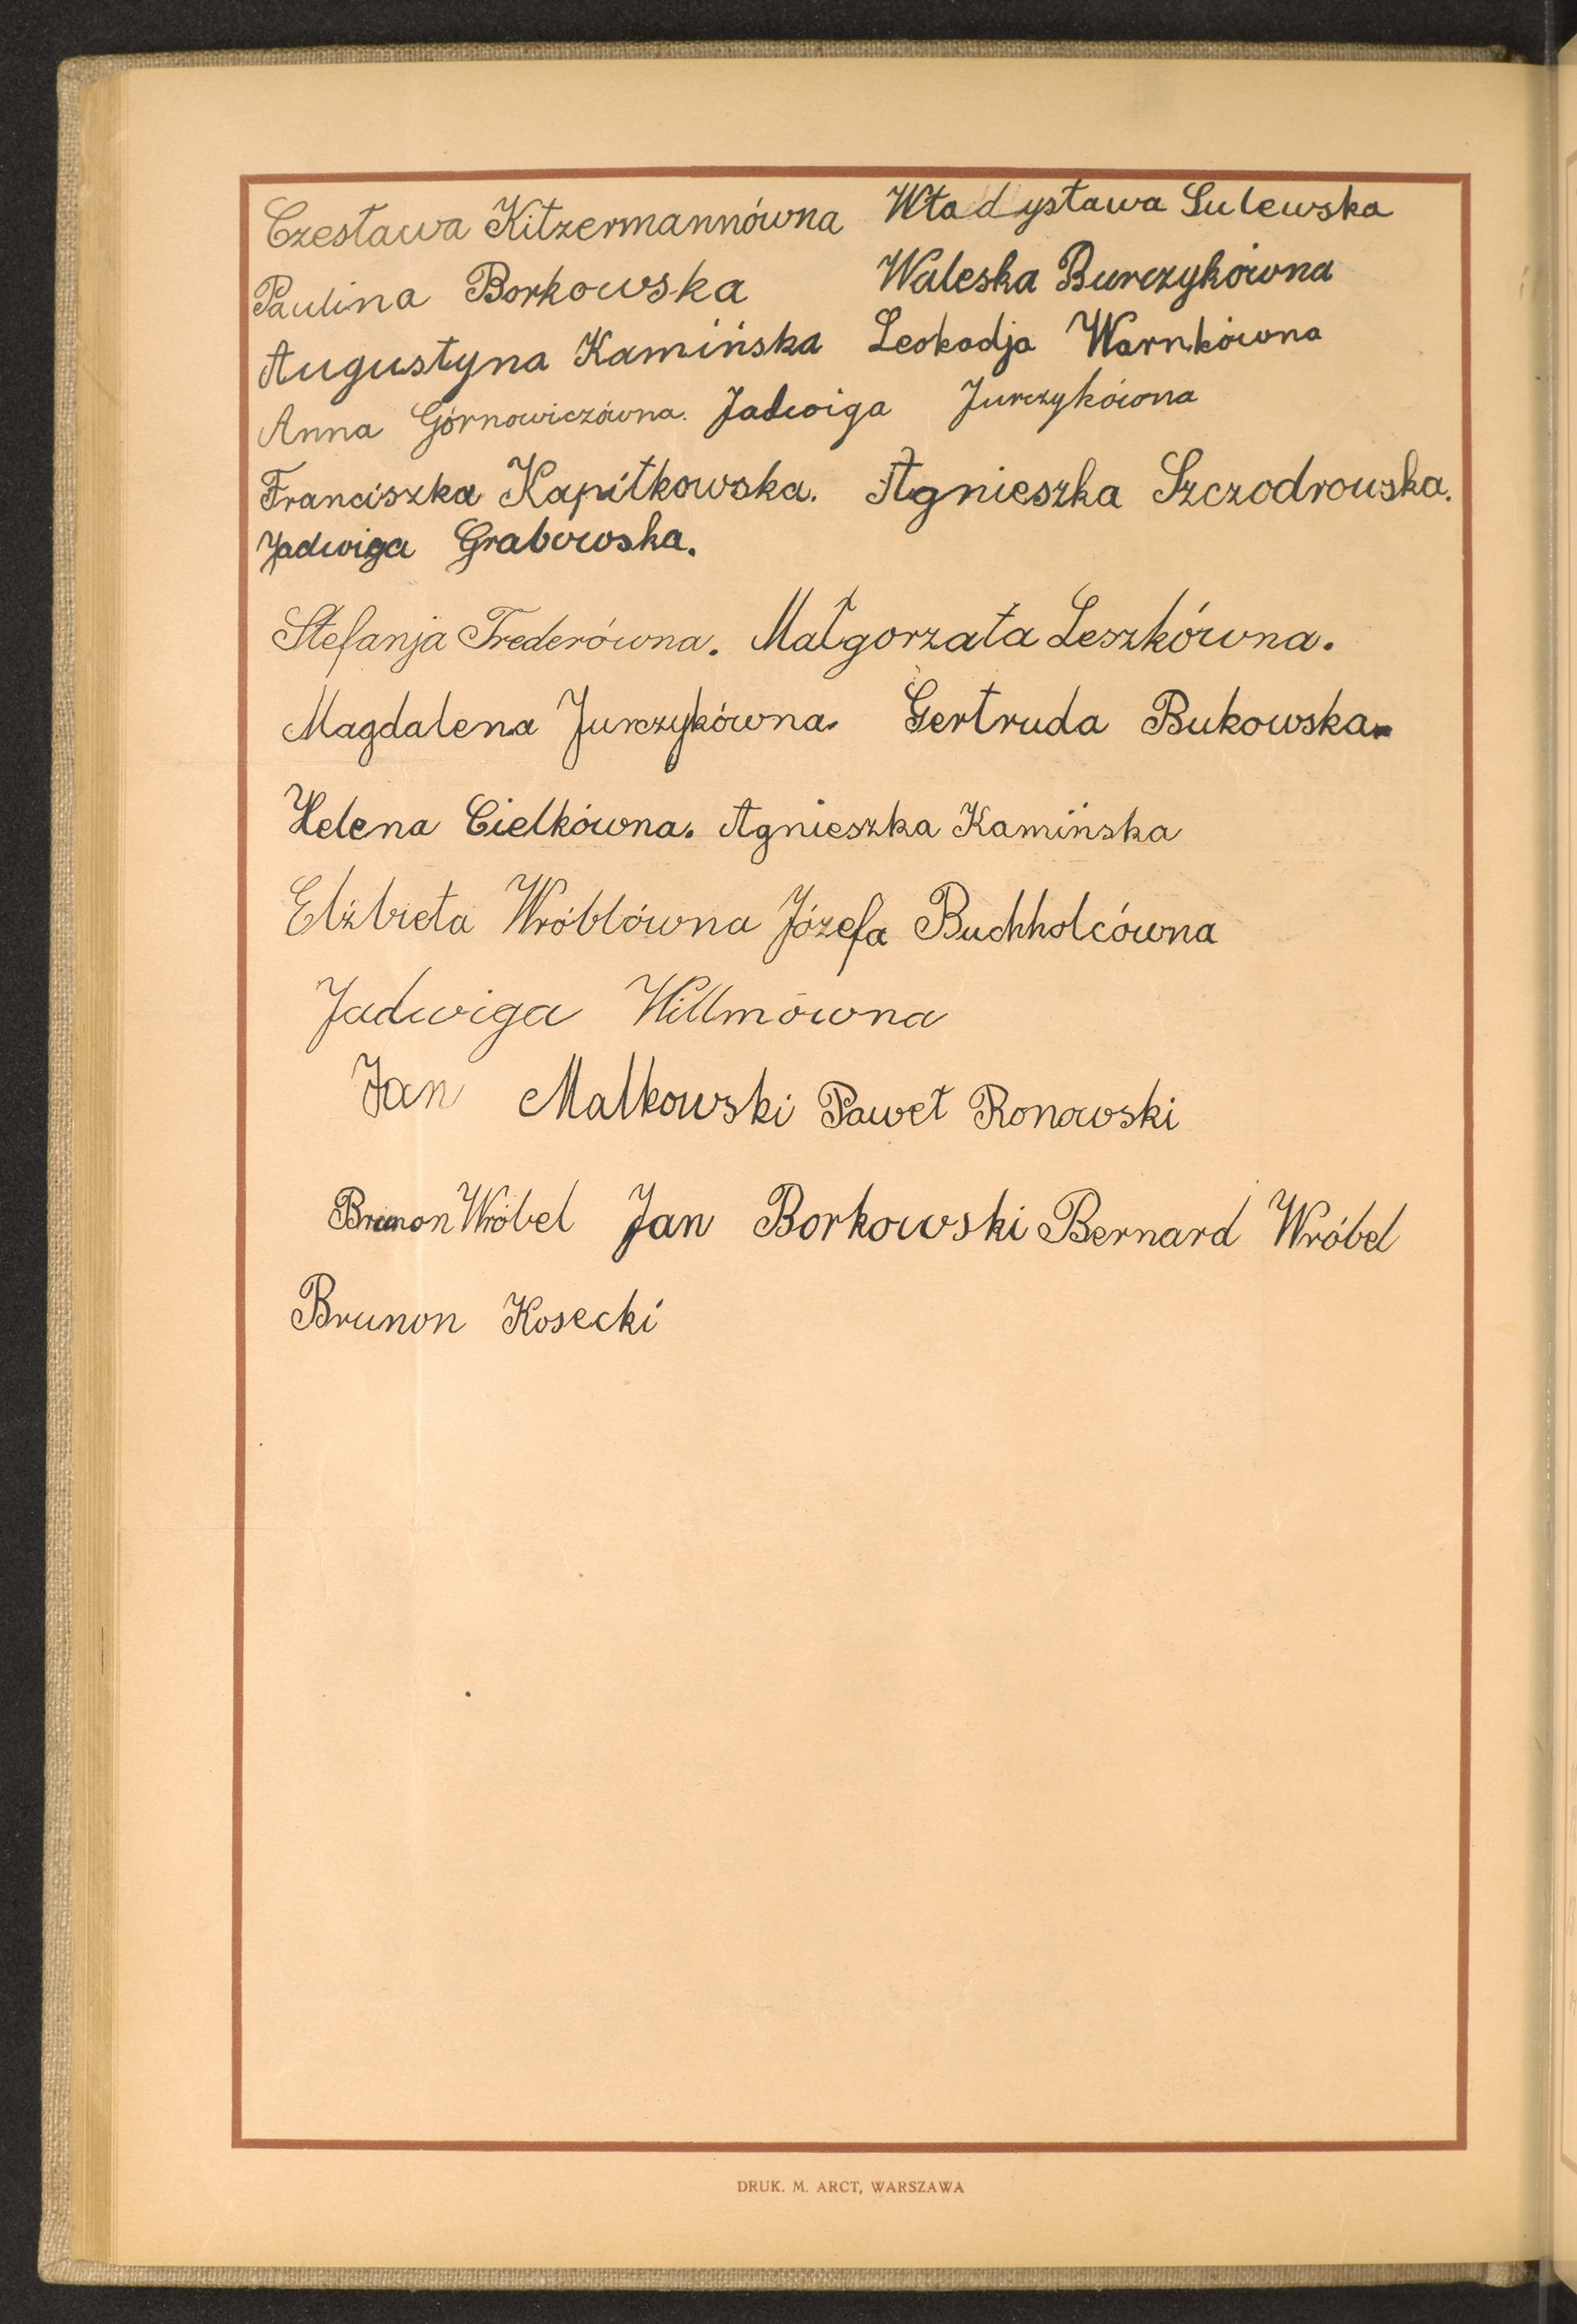 Czesława Kitzermannówna Władysława Sulewska
Paulina Borkowska Waleska Burczykówna
Augustyna Kamińska Leokadja Warnkówna
Anna Górnowiczówna. Jadwiga Jurczykówna
Franciszka Kapitkowska. Agnieszka Szczodrowska.
Jadwiga Grabowska.
Stefanja Trederówna. Małgorzata Leszkówna.
Magdalena Jurczykówna. Gertruda Bukowska.
Helena Cielkówna. Agnieszka Kamińska
Elżbieta Wróblówna Józefa Buchholcówna
Jadwiga Willmówna
Jan Malkowski Paweł Ronowski
Brunon Wróbel Jan Borkowski Bernard Wróbel
Brunon Kosecki
DRUK. M. ARCT, WARSZAWA